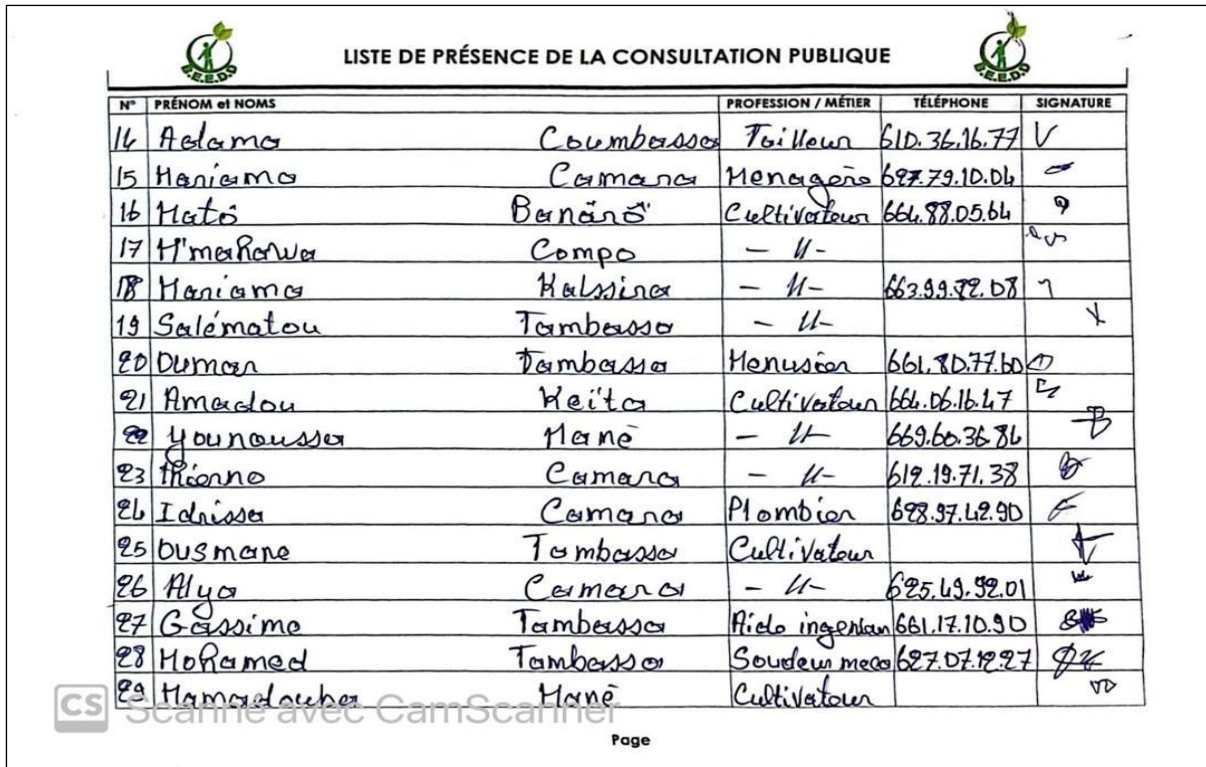 B.E.E.D.D
LISTE DE PRÉSENCE DE LA CONSULTATION PUBLIQUE
B.E.E.D.D
N° PRÉNOM et NOMS PROFESSION / MÉTIER TÉLÉPHONE SIGNATURE
14 Adama Coumbassa Tailleur 610.36.16.77
15 Mariama Camara Menagère 627.79.10.04
16 Mato Cultivateur 664.88.05.64
17 Compo - 11 -
18 Mariama - 11 - 663.99.22.08
19 Salématou Tambassa - 11 -
20 Oumar Tambassa Menusier 661.80.77.60
21 Amadou Keïta Cultivateur 664.06.16.47
22 Younoussa Mané - 11 - 669.60.36.86
23 Thierno Camara - 11 - 612.19.71.38
24 Idrissa Camara Plombier 628.97.42.90
25 Ousmane Tambassa Cultivateur
26 Alya Camara - 11 - 625.49.92.01
27 Gassime Tambassa Aide 661.17.10.90
28 Mohamed Tambassa Soudeur meca 627.07.12.27
29 Mamadouba Mané Cultivateur
CS Scanné avec CamScanner
Page